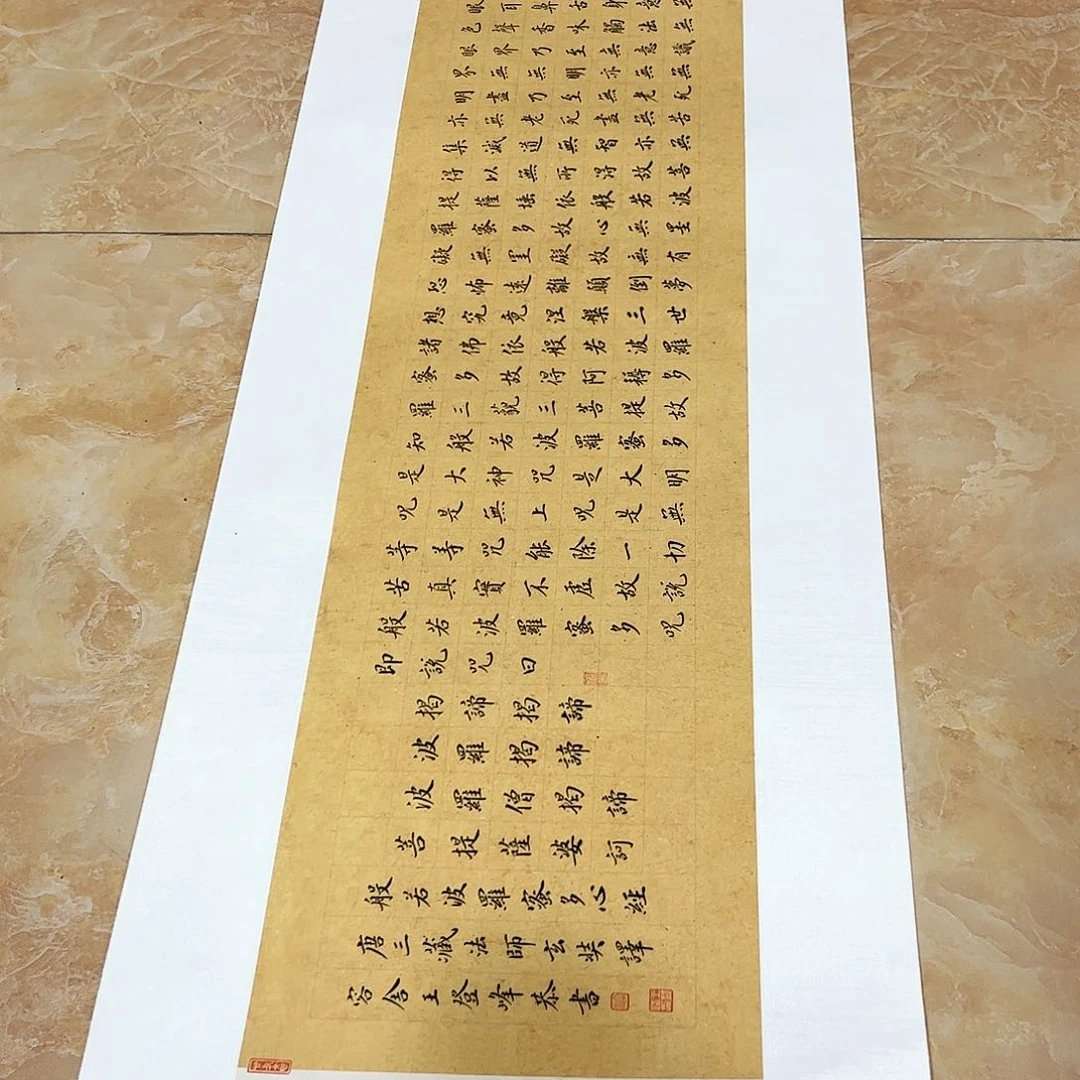 眼耳鼻舌身意無
色聲香味觸法無
眼界乃至無意識
界無無明亦無無
明盡乃至無老死
亦無老死盡無苦
集滅道無智亦無
得以無所得故菩
提薩埵依般若波
羅蜜多故心無罣
礙無罣礙故無有
恐怖遠離顛倒夢
想究竟涅槃三世
諸佛依般若波羅
蜜多故得阿耨多
羅三藐三菩提故
知般若波羅蜜多
是大神咒是大明
咒是無上咒是無
等等咒能除一切
苦真實不虛故說
般若波羅蜜多咒
即說咒曰
揭諦揭諦
波羅揭諦
波羅僧揭諦
菩提薩婆訶
般若波羅蜜多心經
唐三藏法師玄奘譯
容舍王登峰恭書